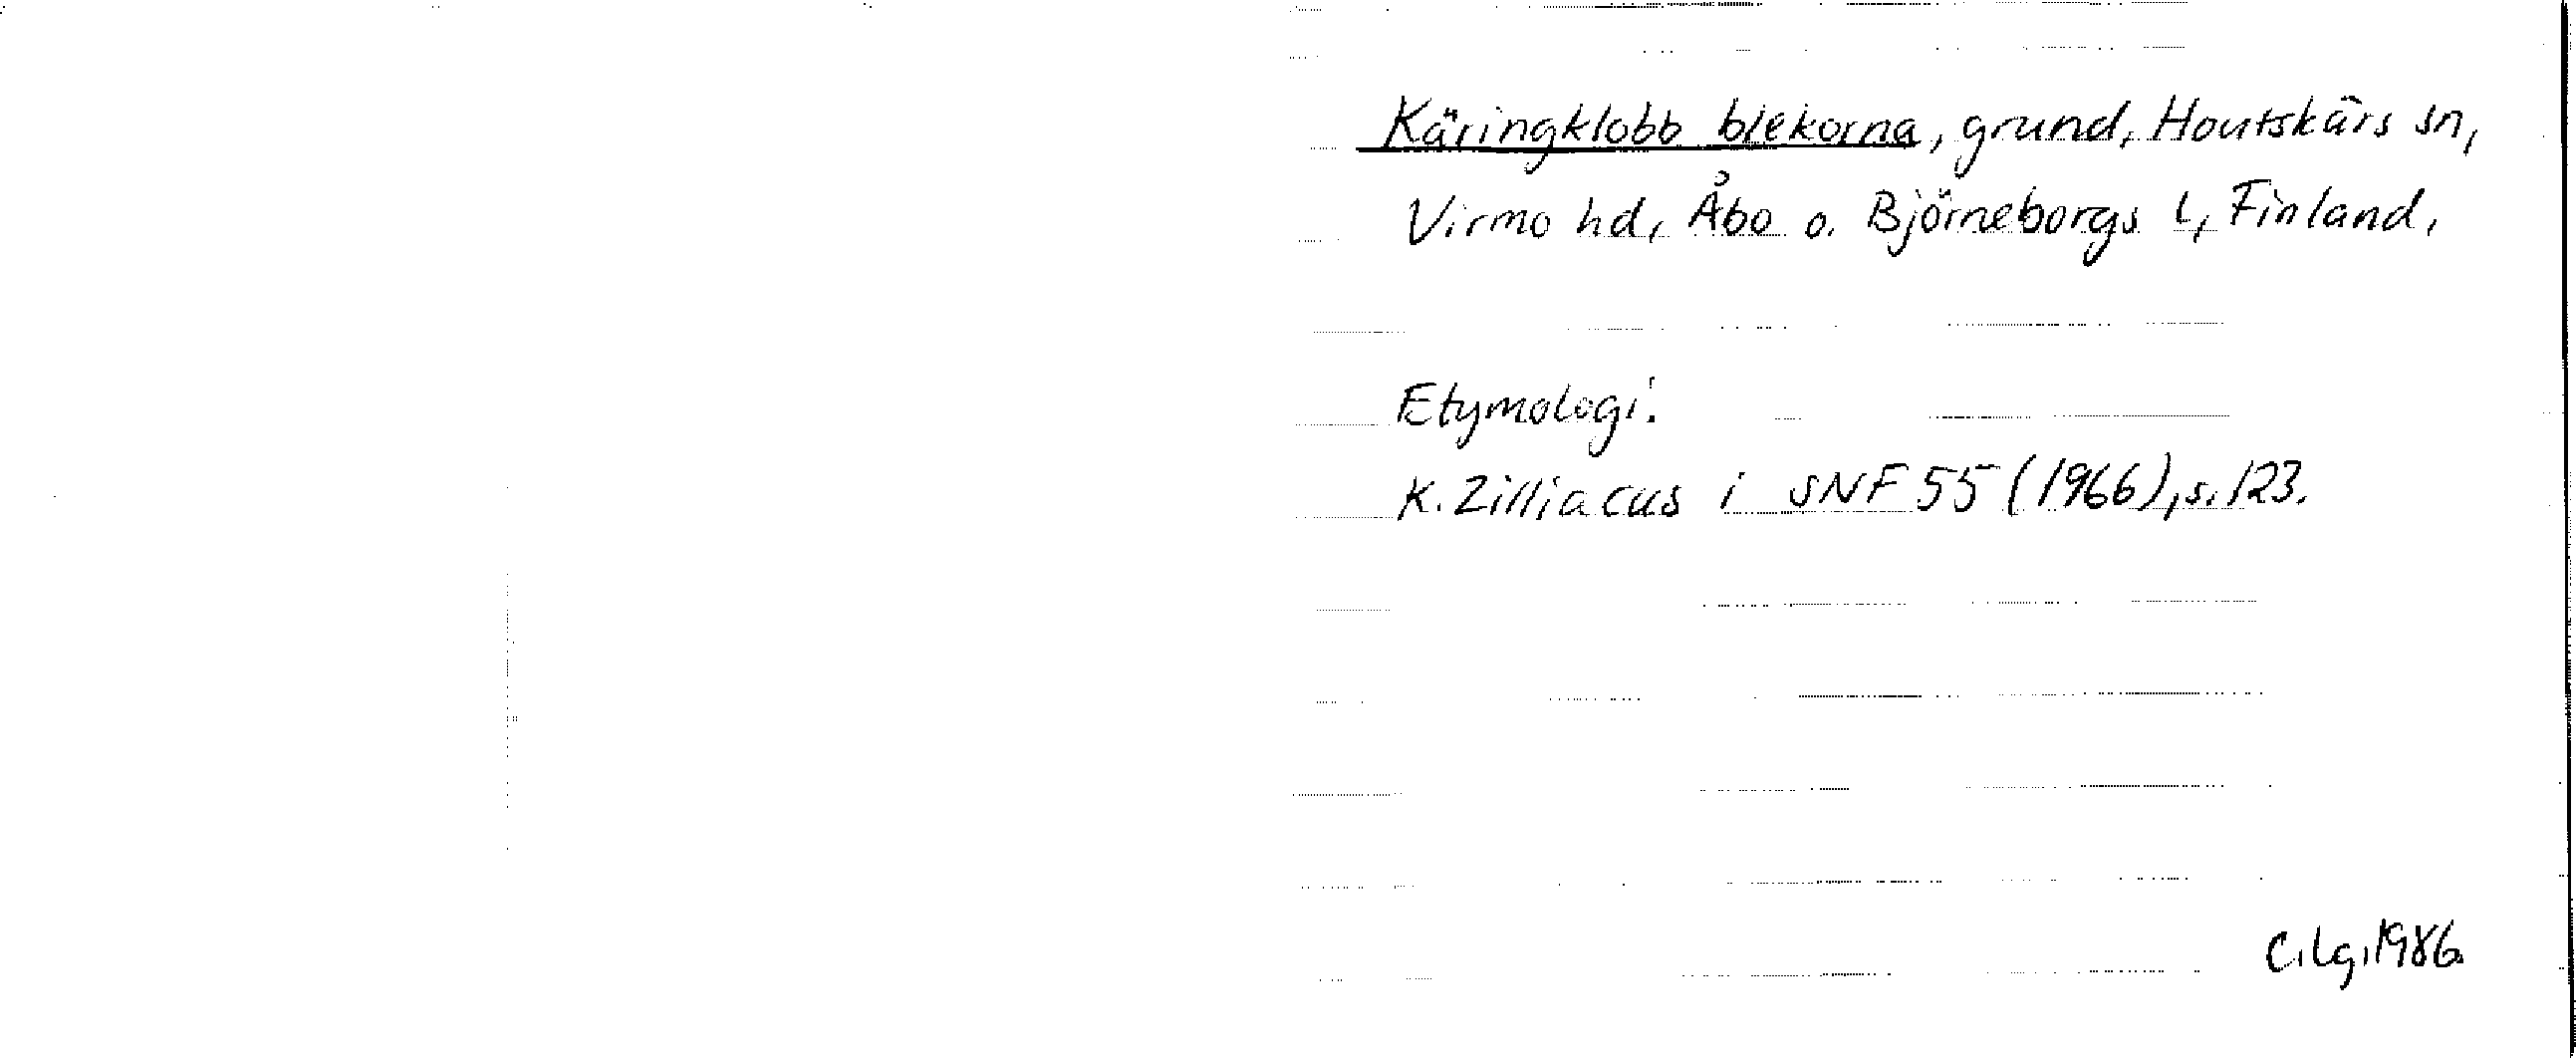 Käringklobb blekorna, grund, Houtskärs sn,
Virmo hd, Åbo o. Björneborgs l, Finland,
Etymologi:
K. Zilliacus i SNF 55 (1966), s. 123.
C.Lg, 1986.